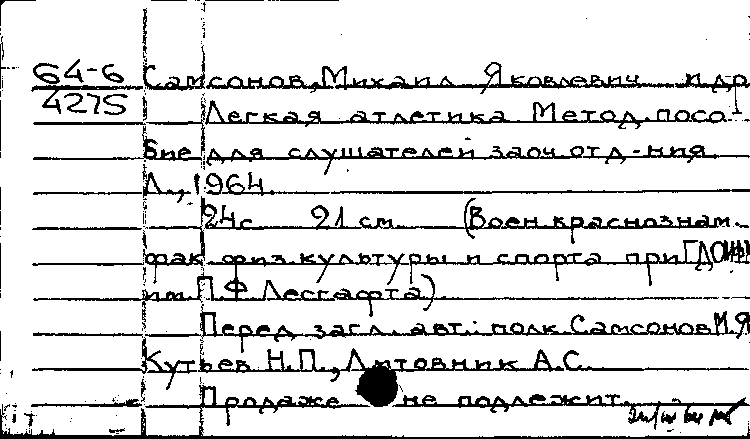 64-6 Самсонов, Михаил Яковлевич и др
4275 Легкая атлетика Метод. посо-
бие для слушателей заоч. отд-ния.
Л., 1964.
24с 21 см (Воен. краснознам.
фак. физ. культуры и спорта при ГДОИФК
им. П.Ф Лесгафта).
Перед загл. авт.: полк. Самсонов М.Я
Кутьев Н.П., Литовник А.С.
Продаже не подлежит.